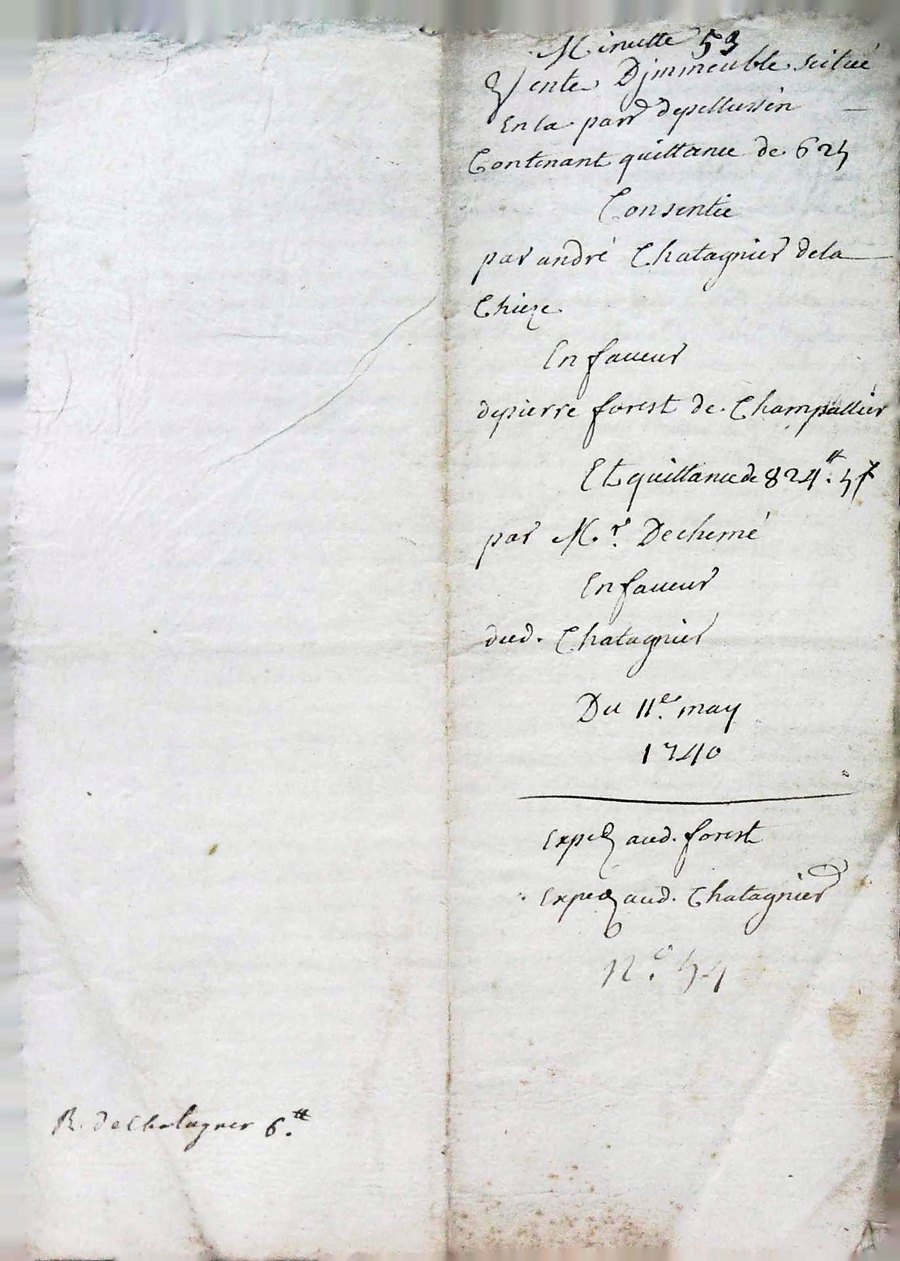 Minutte 53
Vente Djmmeuble scitué
En la parr. depellussin
Contenant quittance de 625
Consentie
par andré Chatagnier dela
Chieze
En faueur
depierre forest de Champallier
Et quittance de 824 ₶. 5 s
par M.r Dechemé
En faueur
dud. Chatagnier
Du 11e. may
1740
Exped aud. forest
Exped aud. Chatagnier
n°. 54
R. de Chatagner 6.₶